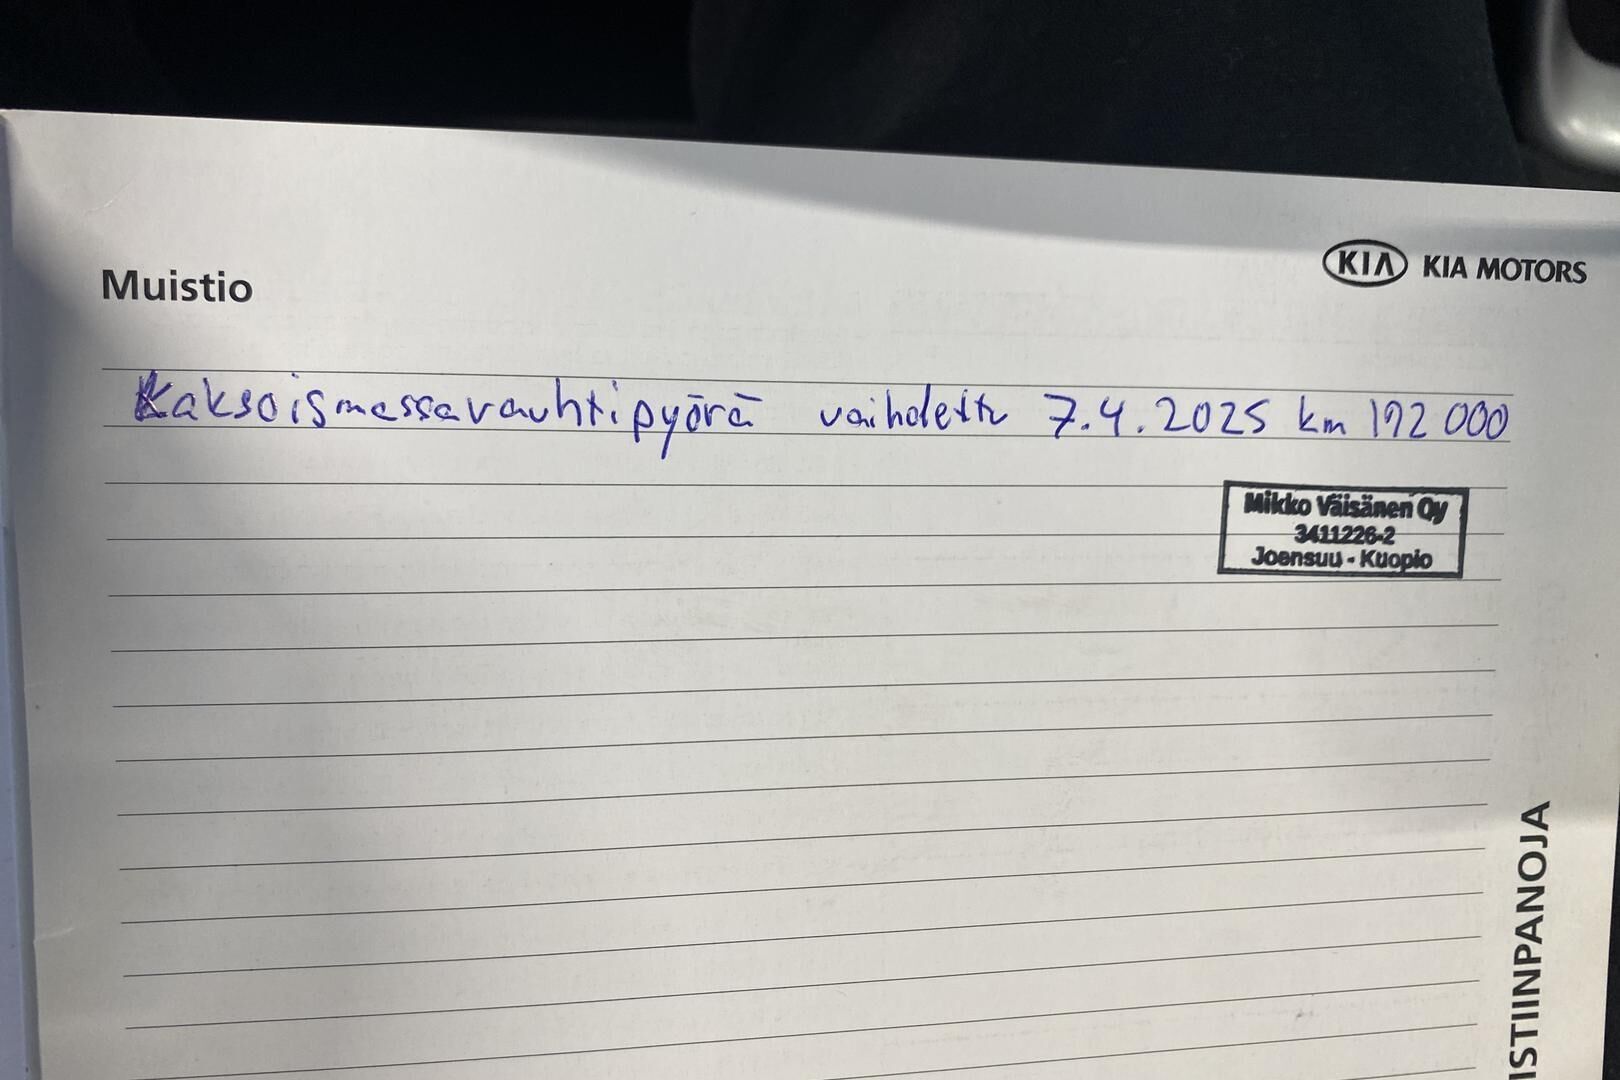 KIA KIA MOTORS
Muistio
Kaksoismassavauhtipyörä vaihdettu 7.4.2025 km 192 000
Mikko Väisänen Oy
3411226-2
Joensuu - Kuopio
ISTIINPANOJA